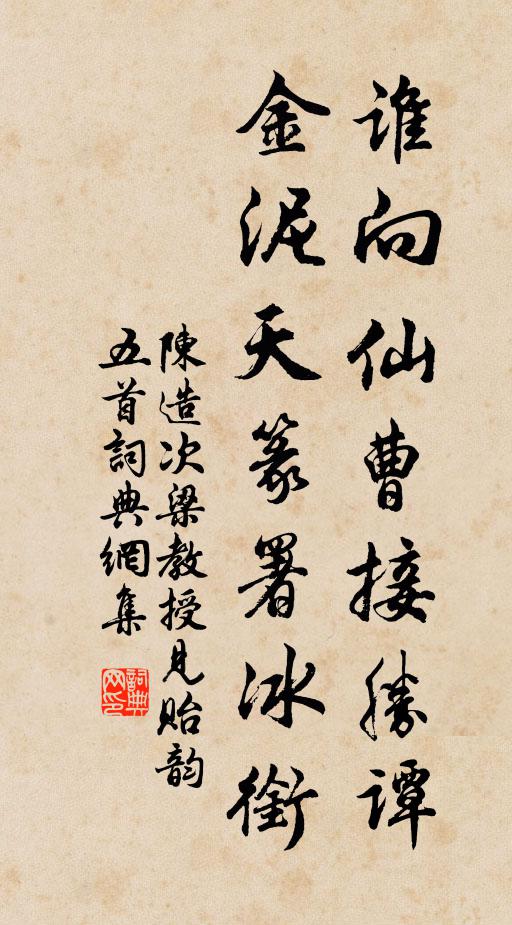 谁向仙曹接胜谭
金泥天篆署冰衔
陳造次梁教授見貽韵
五首詞典網集
詞典网印